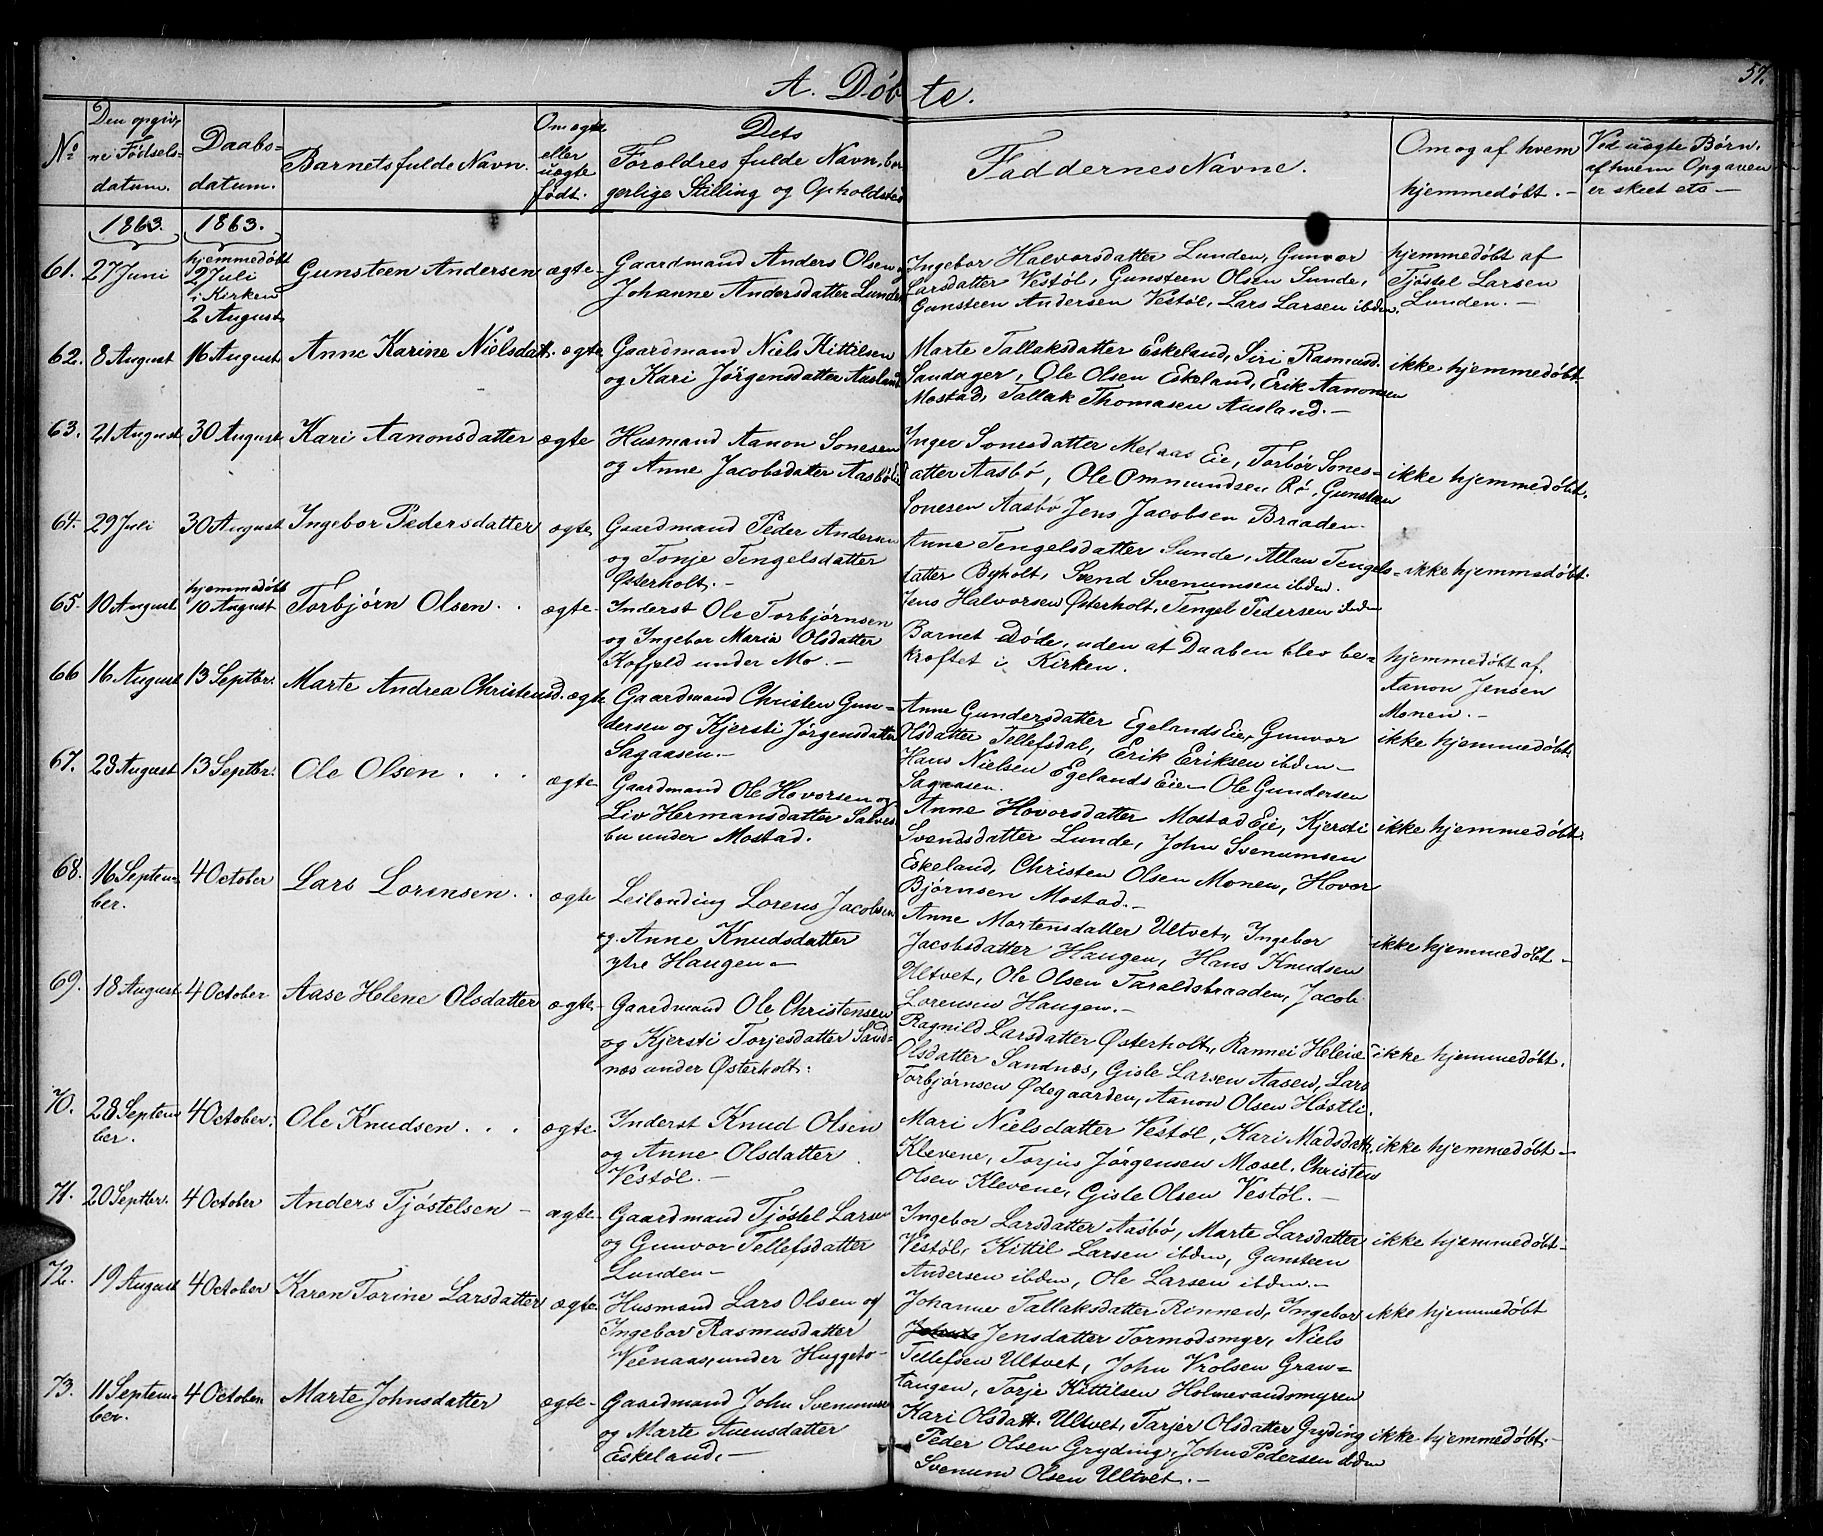 57.
A. Döbte.
No
Den opgiv-
ne Födsels-
datum.
Daabs-
datum.
Barnets fulde Navn.
Om ægte
eller
uægte
födt.
Dets
Foroldres fulde Navn, bor
gerlige Stilling og Opholdssted
Faddernes Navne.
Om og af hvem
hjemmedöbt. -
Ved uægte Börn,
af hvem Opgaven
er skeet etc -
1863. 1863.
61. 27 Juni
hjemmedöbt
2 Juli
i Kirken
2 August
Gunsteen Andersen ægte-
Gaardmand Anders Olsen og
Johanne Andersdatter Lunden
Ingebor Halvorsdatter Lunden, Gunvor
Larsdatter Vestöl, Gunsteen Olsen Sunde,
Gunsteen Andersen Vestöl, Lars Larsen ibdm.
hjemmedöbt af
Tjöstel Larsen
Lunden. -
62. 8 August 16 August Anne Karine Nielsdatt. ægte
Gaardmand Niels Kittilsen
og Kari Jörgensdatter Aasland
Marte Tallaksdatter Eskeland, Siri Rasmusd.
Sandager, Ole Olsen Eskeland, Erik Aanonsen
Mostad, Tallak Thomasen Ausland. -
ikke hjemmedöbt
63. 21 August 30 August Kari Aanonsdatter ægte
Husmand Aanon Sonesen
og Anne Jacobsdatter Aasbö
Inger Sonesdatter Melaas Eie, Torbör Sones-
datter Aasbö, Ole Ommundsen Rö, Gunsteen
Sonesen Aasbö Jens Jacobsen Braaden.
ikke hjemmedöbt.
64. 29 Juli 30 August Ingebor Pedersdatter ægte
Gaardmand Peder Andersen
og Tonje Tengelsdatter
Østerholt. -
Anne Tengelsdatter Sunde, Allau Tengels-
datter Byholt, Svend Svenumsen ibdm.
Jens Halvorsen Østerholt, Tengel Pedersen ibdm
ikke hjemmedöbt.
65. 10 August
hjemmedöbt
10 August
Torbjörn Olsen . . ægte-
Inderst Ole Torbjörnsen
og Ingebor Maria Olsdatter
Kofjeld under Mo. -
Barnet Döde, uden at Daaben blev be-
kræftet i Kirken.
hjemmedöbt af
Aanon Jensen
Monen. -
66 16 August 13 Septbr. Marte Andrea Christensd. ægte
Gaardmand Christen Gun-
dersen og Kjersti Jörgensdatter
Sagaasen. -
Anne Gundersdatter Egelands Eie, Gunvor
Olsdatter Tellefsdal, Erik Eriksen ibdm -
Hans Nielsen Egelands Eie - Ole Gundersen
Sagaasen.
ikke hjemmedöbt.
67. 28 August 13 Septbr. Ole Olsen . . . ægte-
Gaardmand Ole Hovorsen og
Liv Hermansdatter Salves
bu under Mostad.
Anne Hovorsdatter Mostad Eie, Kjersti
Svendsdatter Lunde, John Svenumsen
Eskeland, Christen Olsen Monen, Hovor
Björnsen Mostad. -
ikke hjemmedöbt.
68. 16 Septem-
ber.
4 October Lars Lorensen . . ægte
Leilending Lorens Jacobsen
og Anne Knudsdatter
ytre Haugen -
Anne Mortensdatter Ultvet, Ingebor
Jacobsdatter Haugen, Hans Knudsen
Ultvet, Ole Olsen Taraldsbraaden, Jacob
Lorensen Haugen. -
ikke hjemmedöbt -
69. 18 August 4 October Aase Helene Olsdatter ægte-
Gaardmand Ole Christensen
og Kjersti Torjesdatter Sand-
næs under Østerholt.
Ragnild Larsdatter Østerholt, Rannei Helene
Olsdatter Sandnæs, Gisle Larsen Aasen, Lars
Torbjörnsen Ødegaarden, Aanon Olsen Höstli.
ikke hjemmedöbt.
70. 28 Septem
ber.
4 October. Ole Knudsen . . . ægte.
Inderst Knud Olsen
og Anne Olsdatter
Vestöl. -
Mari Nielsdatter Vestöl, Kari Madsdatt.
Klevene, Torjus Jörgensen Mosel, Christen
Olsen Klevene, Gisle Olsen Vestöl. -
ikke hjemmedöbt -
71. 20 Septbr. 4 October Anders Tjöstelsen - ægte-
Gaardmand Tjöstel Larsen
og Gunvor Tellefsdatter
Lunden -
Ingebor Larsdatter Aasbö, Marte Larsdatter
Vestöl, Kittil Larsen ibdm, Gunsteen
Andersen ibdm, Ole Larsen ibdm. -
ikke hjemmedöbt -
72. 19 August 4 October Karen Torine Larsdatter ægte.
Husmand Lars Olsen og
Ingebor Rasmusdatter
Veenaas, under Huggeto-
Johanne Tallaksdatter Rinnen, Ingebor
Jensdatter Tormodsmyr, Niels
Tellefsen Ultvet, John Vrolsen Gran-
tangen, Torje Kittilsen Holmevandsmyren
ikke hjemmedöbt
73. 11 Septem-
ber.
4 October Marte Johnsdatter ægte-
Gaardmand John Svenumsen
og Marte Auensdatter
Eskeland. -
Kari Olsdatt. Ultvet, Tarjer Olsdatter Gryding
Peder Olsen Gryding, John Pedersen ibdm
Svenum Olsen Ultvet. -
ikke hjemmedöbt.